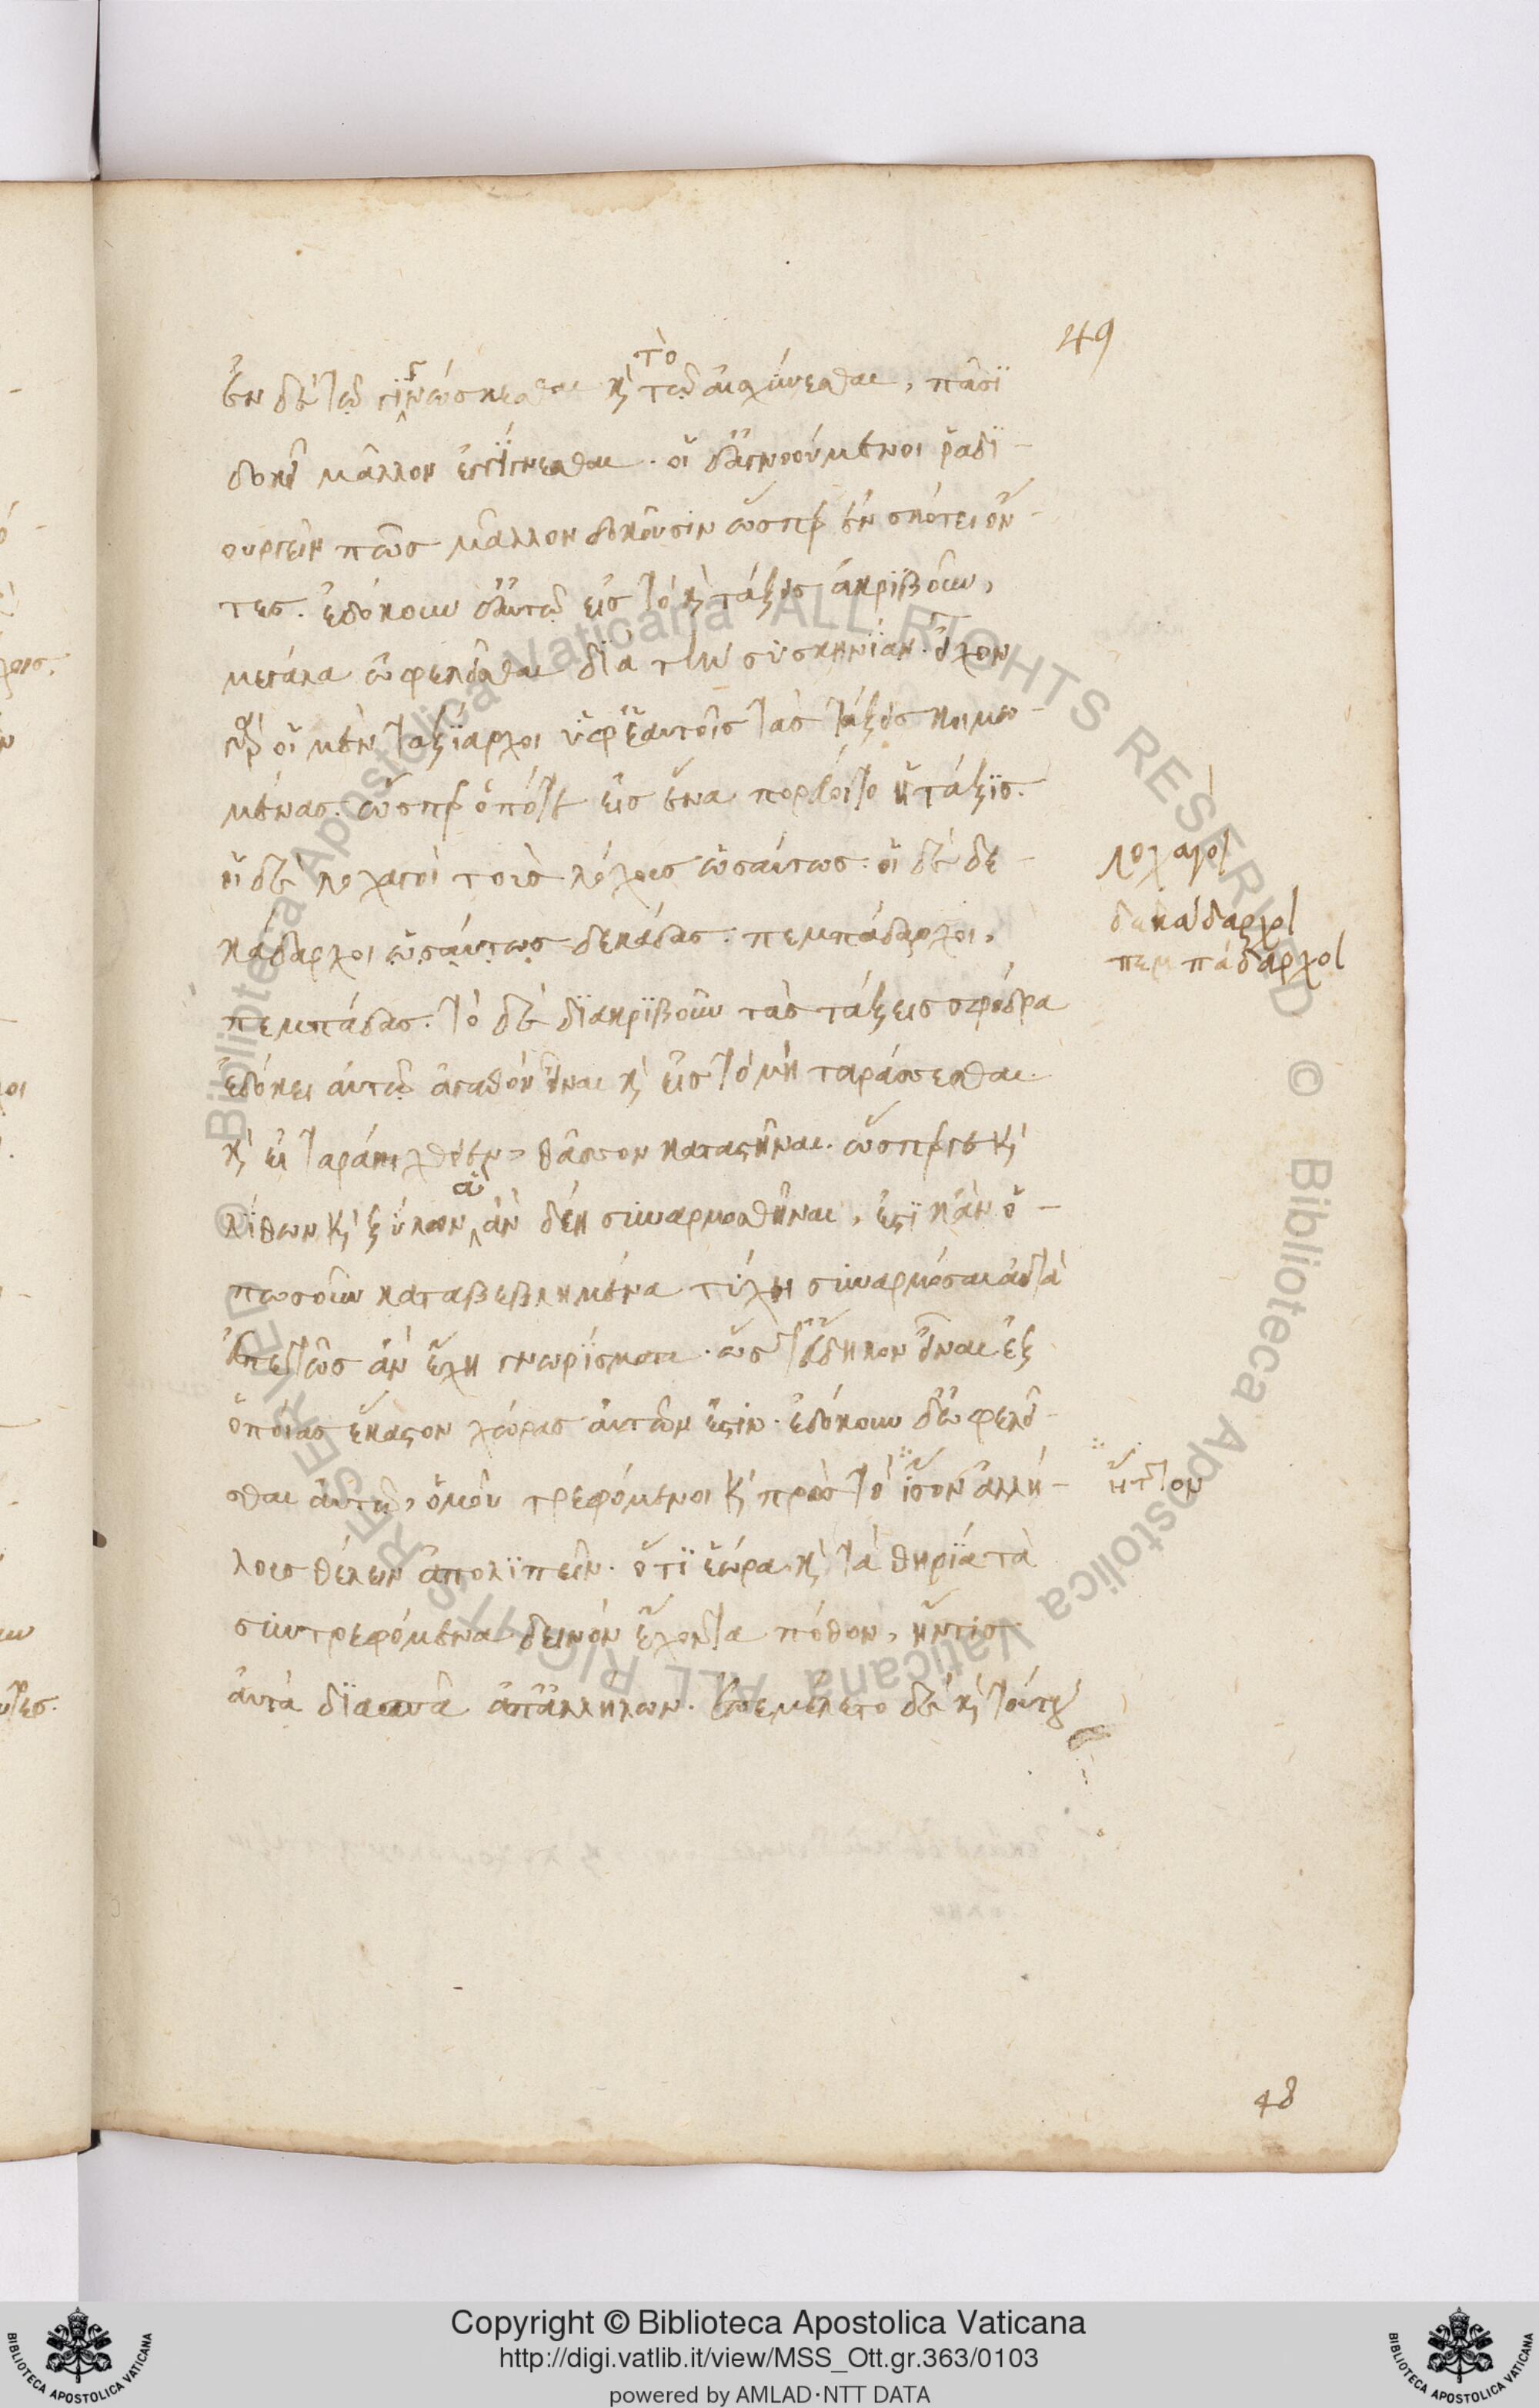 49
ἐν δὲ τῷ γιγνώσκεσθαι κỳ τῷ τὸ αἰσχύνεσθαι, πᾶσϊ
δοκεῖ μᾶλλον ἐγγίγνεσθαι. οἱ δ' ἀγνοούμενοι ῥαδϊ-
ουργεῖν πῶς μᾶλλον δοκοῦσιν ὥσπερ ἐν σκότει ὄν-
τες. ἐδόκουν δ' αὐτῷ εἰς τὸ κỳ τάξεις ἀκριβοῦν,
μεγάλα ὠφελεῖσθαι δϊὰ τὴν συσκηνίαν. εἶχον
γὰρ οἱ μὲν ταξίαρχοι ὑφ' ἑαυτοῖς τὰς τάξεις κοιμω-
μένας. ὥσπερ ὁπότε εἰς ἕνα πορεύοιτο ἡ τάξϊς.
οἱ δὲ λοχαγοὶ τοὺς λόχους ὡσαύτως. οἱ δὲ δε-
κάδαρχοι ὡσαύτως δεκάδας. πεμπάδαρχοι,
πεμπάδας. τὸ δὲ δϊακρϊβοῦν τὰς τάξεις σφόδρα
ἐδόκει αὐτῷ ἀγαθὸν εἶναι κỳ εἰς τὸ μὴ ταράσσεσθαι.
κỳ εἰ ταραχθεῖεν, θᾶσσον καταστῆναι. ὥσπερ γε κỳ
λίθων κỳ ξύλων ἃ ἂν δέῃ συναρμοσθῆναι, ἔστϊ κἂν ὁ-
πωσοῦν καταβεβλημένα τύχῃ συναρμόσαι αὐτὰ
ἐπετῶς ἂν ἔχῃ γνωρίσματα. ὥστ' εὔδηλον εἶναι ἐξ
ὁποίας ἕκαστον χώρας αὐτῶν ἐστιν. ἐδόκουν δ' ὠφελεῖ-
σθαι αὐτῷ, ὁμοῦ τρεφόμενοι κỳ πρὸς τὸ ἶσον ἀλλή-
λους θέλειν ἀπολϊπεῖν. ὅτϊ ἑώρα κỳ τὰ θηρία τὰ
συντρεφόμενα δεινὸν ἔχοντα πόθον, ἤν τις
αὐτὰ δϊασπᾶ ἀπ' ἀλλήλων. ἐπεμέλετο δὲ κỳ τούτου
λοχαγοὶ
δεκάδαρχοι
πεμπάδαρχοι
ἧττον
48
Copyright © Biblioteca Apostolica Vaticana
http://digi.vatlib.it/view/MSS_Ott.gr.363/0103
powered by AMLAD·NTT DATA